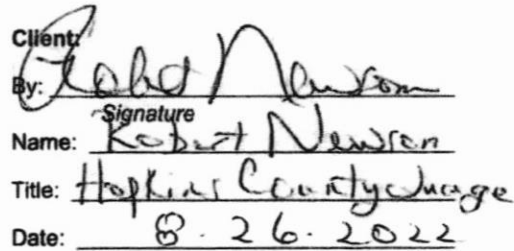 Client:
By: Robert Newsom
Signature
Name: Robert Newsom
Title: Hopkins County Judge
Date: 8.26.2022